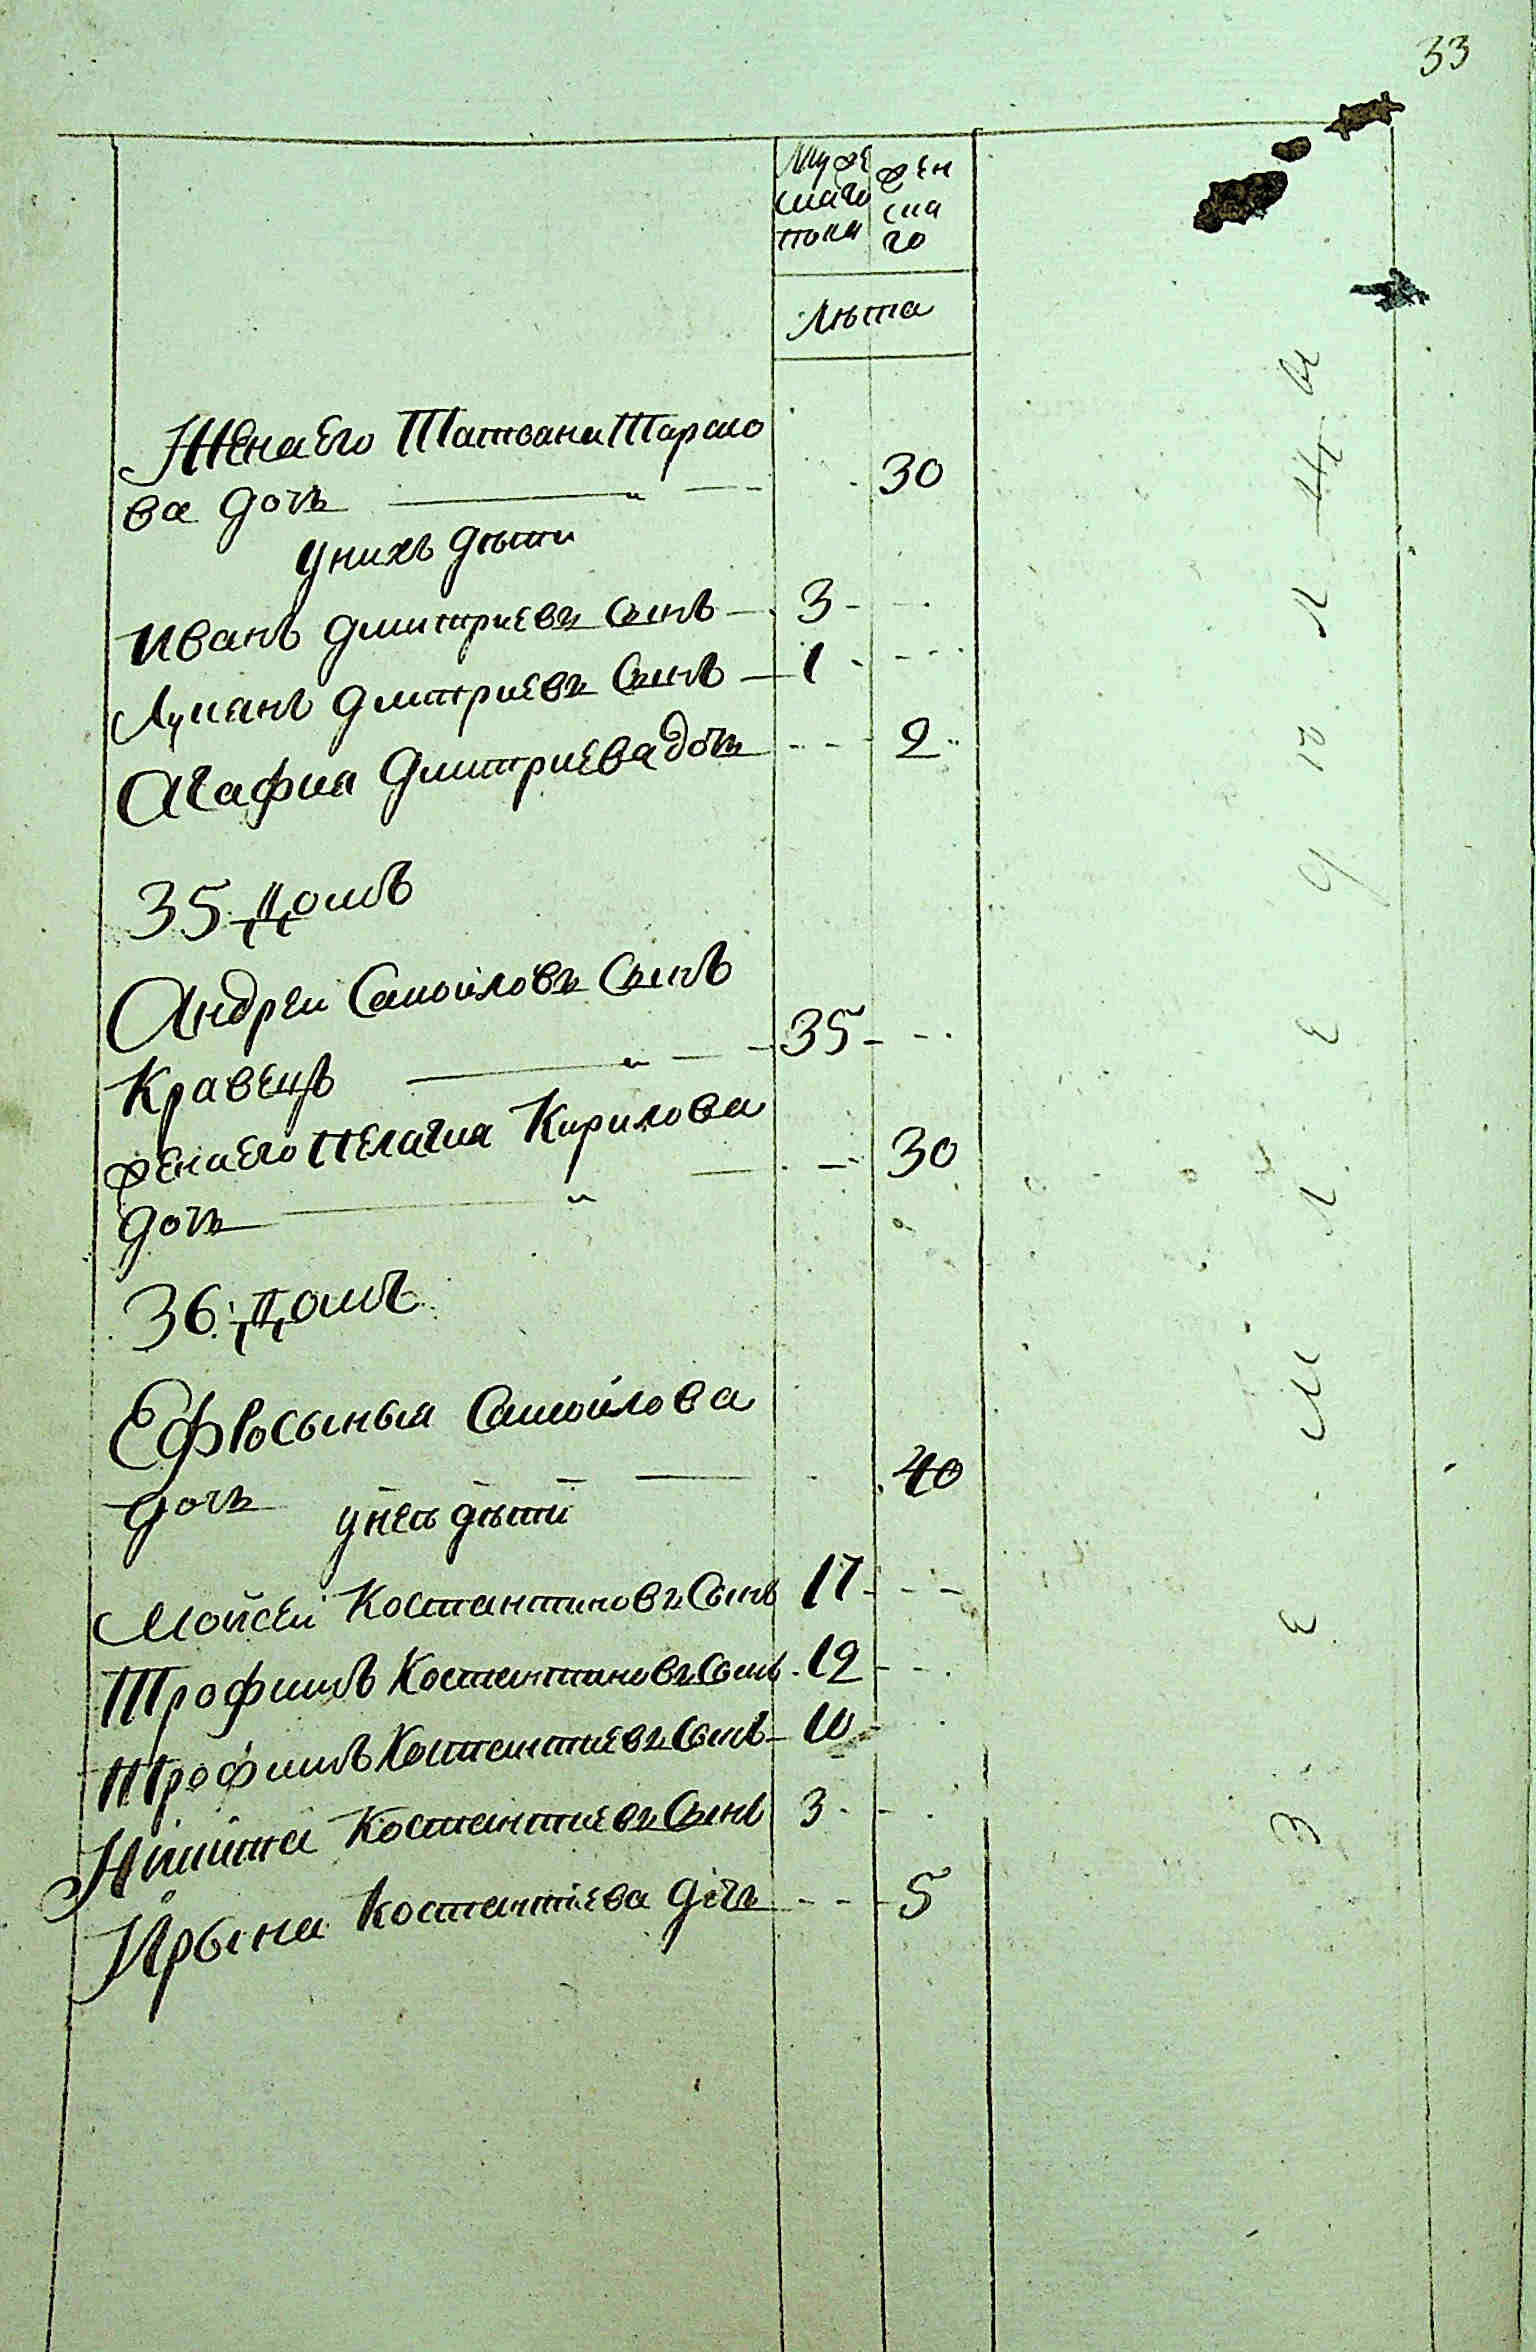 33
Муже
скаго
пола
жен
ска
го
Лѣта
Жена Его Татиана Тарасо
ва дочь 30
у нихъ дѣти
Иванъ Дмитриевъ Сынъ 3
Лукианъ Дмитриевъ Сынъ 1
Агафия Дмитриева дочь 2
35 Домъ
Андрей Самойловъ Сынъ
Кравецъ 35
жена его Пелагия Кирилова
дочь 30
36 Домъ
Ефросыныя Самойлова
дочь 40
у неи дѣти
Мойсей Костантиновъ Сынъ 17
Трофимъ Костантиновъ Сынъ 12
Трофимъ Костантиевъ Сынъ 10
Никита Костантиевъ Сынъ 3
Ирына Костантиева дочь 5
З е м л е д